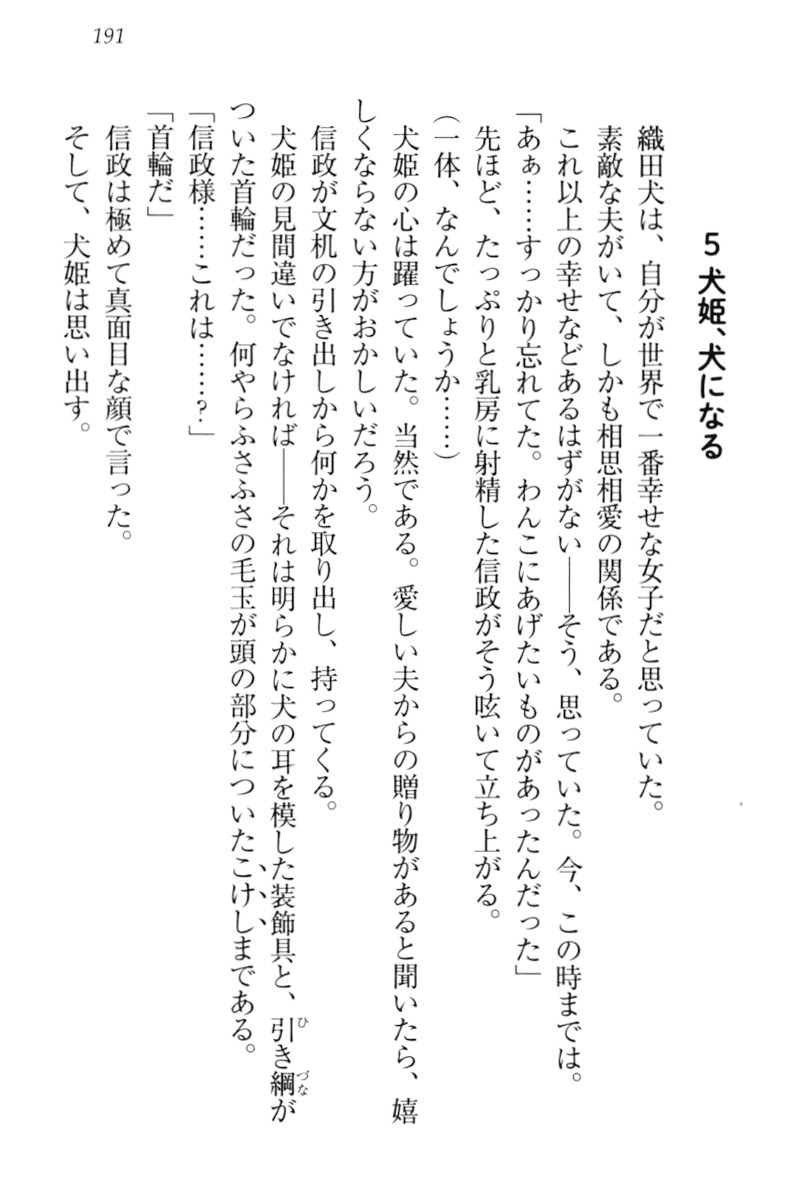 191
5 犬姫、犬になる
織田犬は、自分が世界で一番幸せな女子だと思っていた。
素敵な夫がいて、しかも相思相愛の関係である。
これ以上の幸せなどあるはずがない――そう、思っていた。今、この時までは。
「あぁ……すっかり忘れてた。わんこにあげたいものがあったんだった」
先ほど、たっぷりと乳房に射精した信政がそう呟いて立ち上がる。
(一体、なんでしょうか……)
犬姫の心は躍っていた。当然である。愛しい夫からの贈り物があると聞いたら、嬉
しくならない方がおかしいだろう。
信政が文机の引き出しから何かを取り出し、持ってくる。
犬姫の見間違いでなければ――それは明らかに犬の耳を模した装飾具と、引き綱が
ついた首輪だった。何やらふさふさの毛玉が頭の部分についたこけしまである。
「信政様……これは……?」
「首輪だ」
信政は極めて真面目な顔で言った。
そして、犬姫は思い出す。